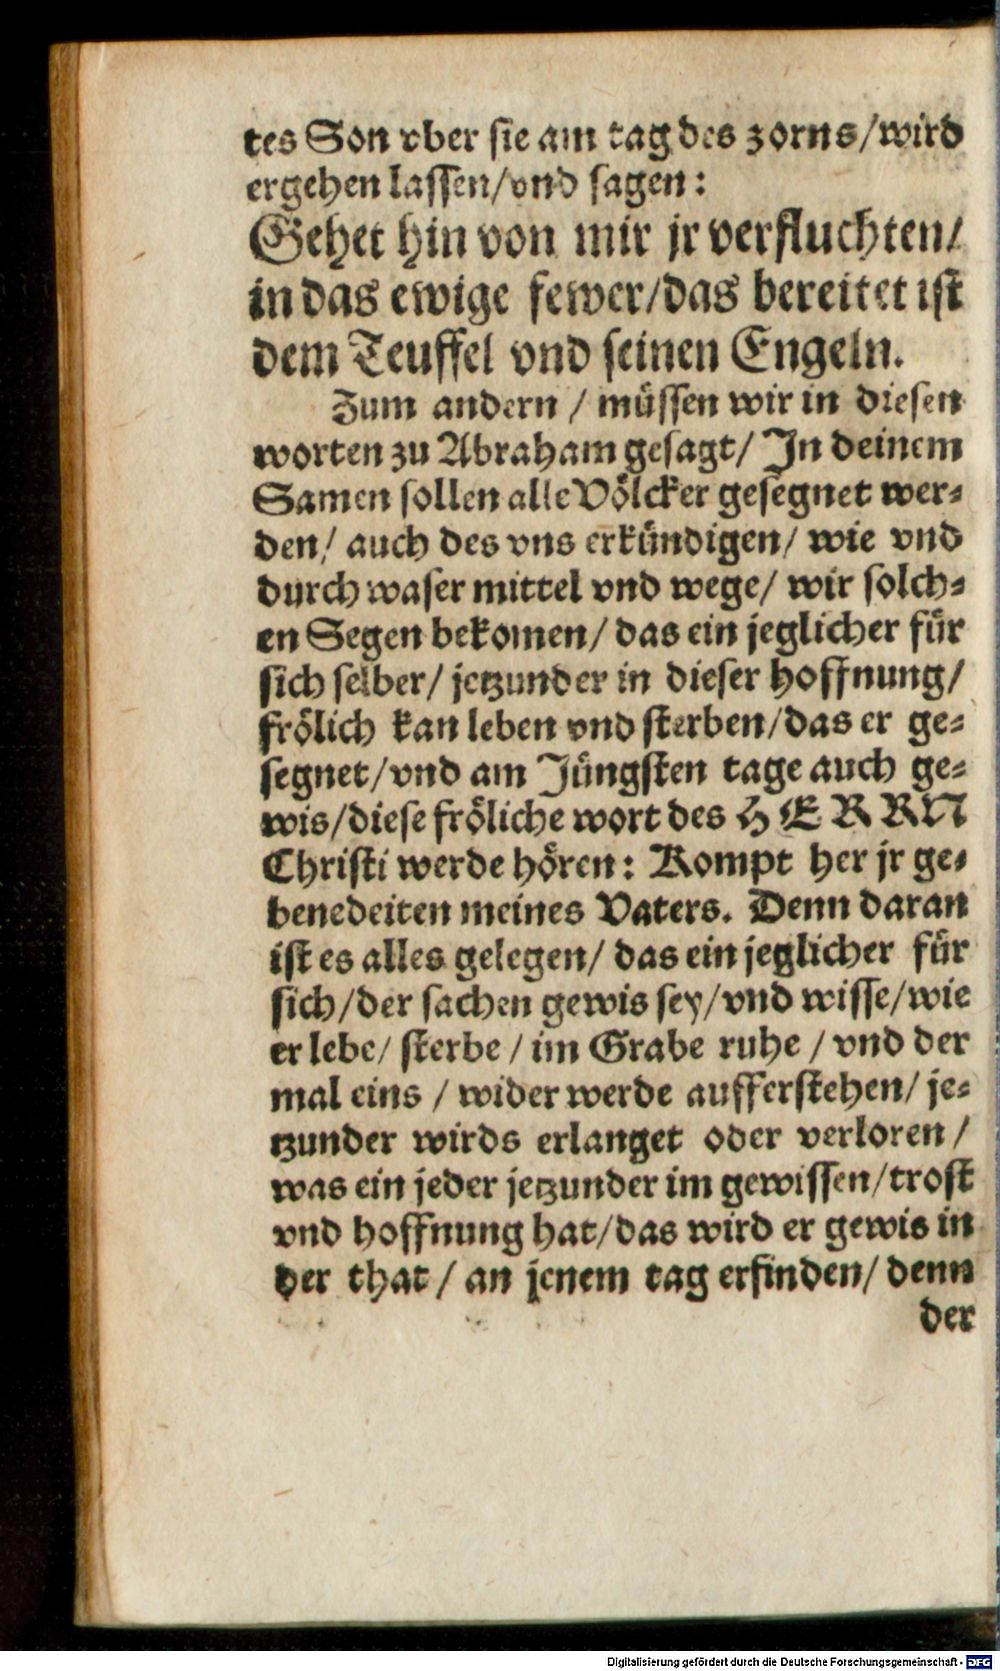 tes Son vber sie am tag des zorns/wird
ergehen lassen/vnd sagen:
Gehet hin von mir jr verfluchten/
in das ewige fewer/das bereitet ist
dem Teuffel vnd seinen Engeln.
Zum andern / müssen wir in diesen
worten zu Abraham gesagt/ In deinem
Samen sollen alle Völcker gesegnet wer-
den/ auch des vns erkündigen/ wie vnd
durch waser mittel vnd wege/ wir solch-
en Segen bekomen/ das ein jeglicher für
sich selber/ jetzunder in dieser hoffnung/
frölich kan leben vnd sterben/das er ge-
segnet/vnd am Jüngsten tage auch ge-
wis/diese fröliche wort des HERRN
Christi werde hören: Kompt her jr ge-
benedeiten meines Vaters. Denn daran
ist es alles gelegen/ das ein jeglicher für
sich/der sachen gewis sey/vnd wisse/wie
er lebe/ sterbe / im Grabe ruhe / vnd der
mal eins / wider werde aufferstehen/ je-
tzunder wirds erlanget oder verloren /
was ein jeder jetzunder im gewissen/trost
vnd hoffnung hat/das wird er gewis in
der that / an jenem tag erfinden/ denn
der
Digitalisierung gefördert durch die Deutsche Forschungsgemeinschaft - DFG